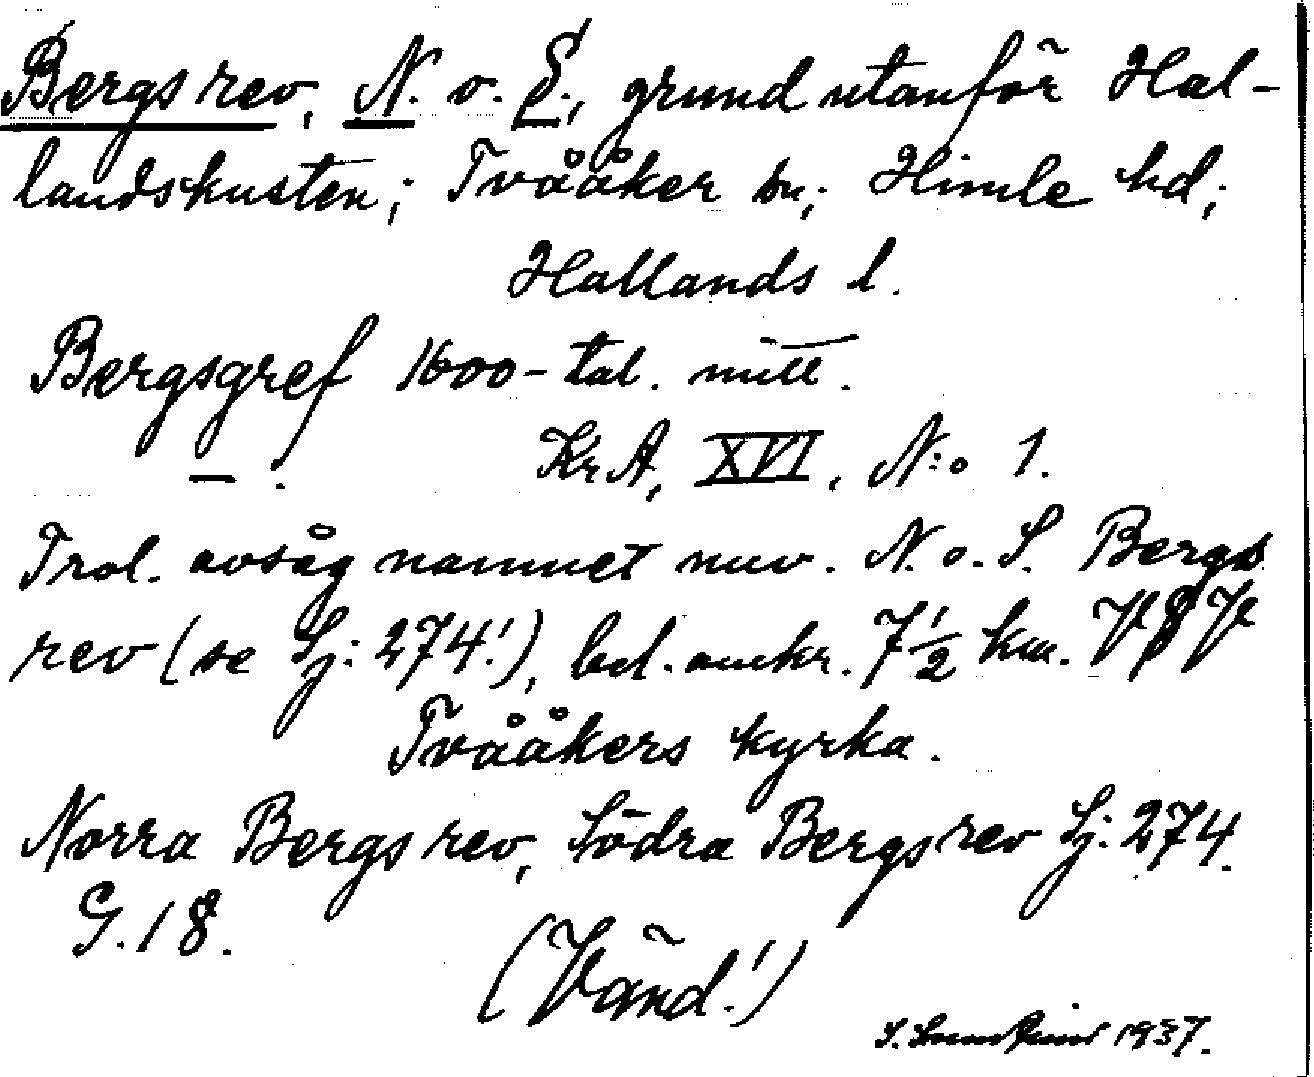 Bergs rev, N. o. S., grund utanför Hal-
landskusten; Tvååker sn; Himle hd;
Hallands l.
Bergsgref 1600-tal. mitt.
— . Kr A, XVI, N:o 1.
Trol. avsåg namnet nuv. N. o. S. Bergs
rev (se Sj: 274!), bel. omkr. 7 1/2 km. VSV
Tvååkers kyrka.
Norra Bergs rev, Södra Bergs rev Sj: 274.
G. 18.
(Vänd!)
S. 1937.